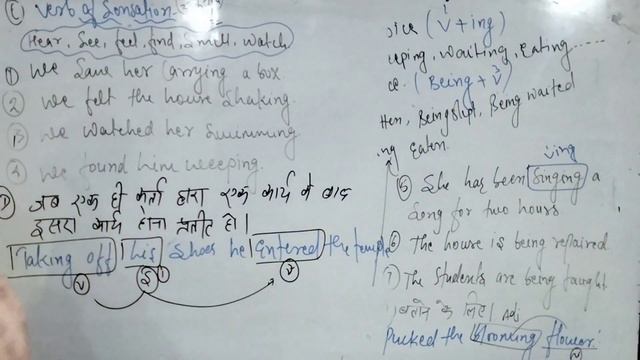 (C) Verb of Sensation
Hear, See, feel, find, Smell, watch
① We Saw her Carrying a box.
② We felt the house Shaking.
③ We watched her Swimming
④ We found him weeping.
(D) जब एक ही कर्ता द्वारा एक कार्य के बाद
दूसरा कार्य होना प्रतीत हो।
Taking off his Shoes he Entered the temple
(V) (S) (V)
(V + ing)
eping, Waiting, Eating.....
ce. (Being + V3)
Hen, Being slept, Being waited
ng Eaten.
Ving
⑤ She has been Singing a
Song for two hours
⑥ The house is being repaired
⑦ The Students are being taught
के लिए। Adj
the flower.
(N)